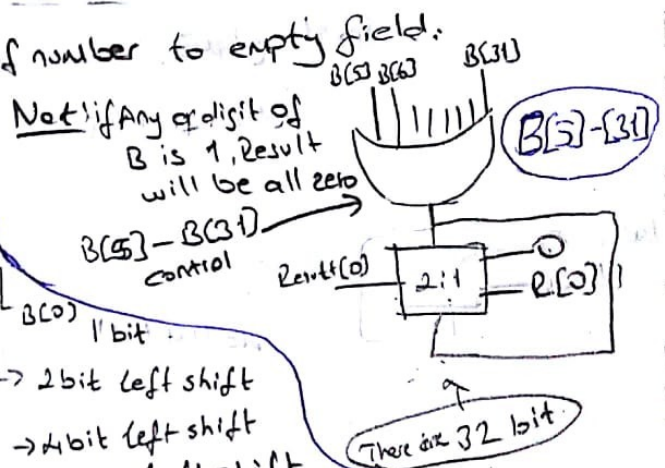 f number to empty field.
B[5] B[6] B[31]
Not: if Any digit of
B is 1, Result
will be all zero
B[5]-[31]
B[5] - B[31]
control
Result[0]
2:1
0
R[0]
B[0]
1 bit
-> 2 bit left shift
-> 4 bit left shift
left shift
There are 32 bit.